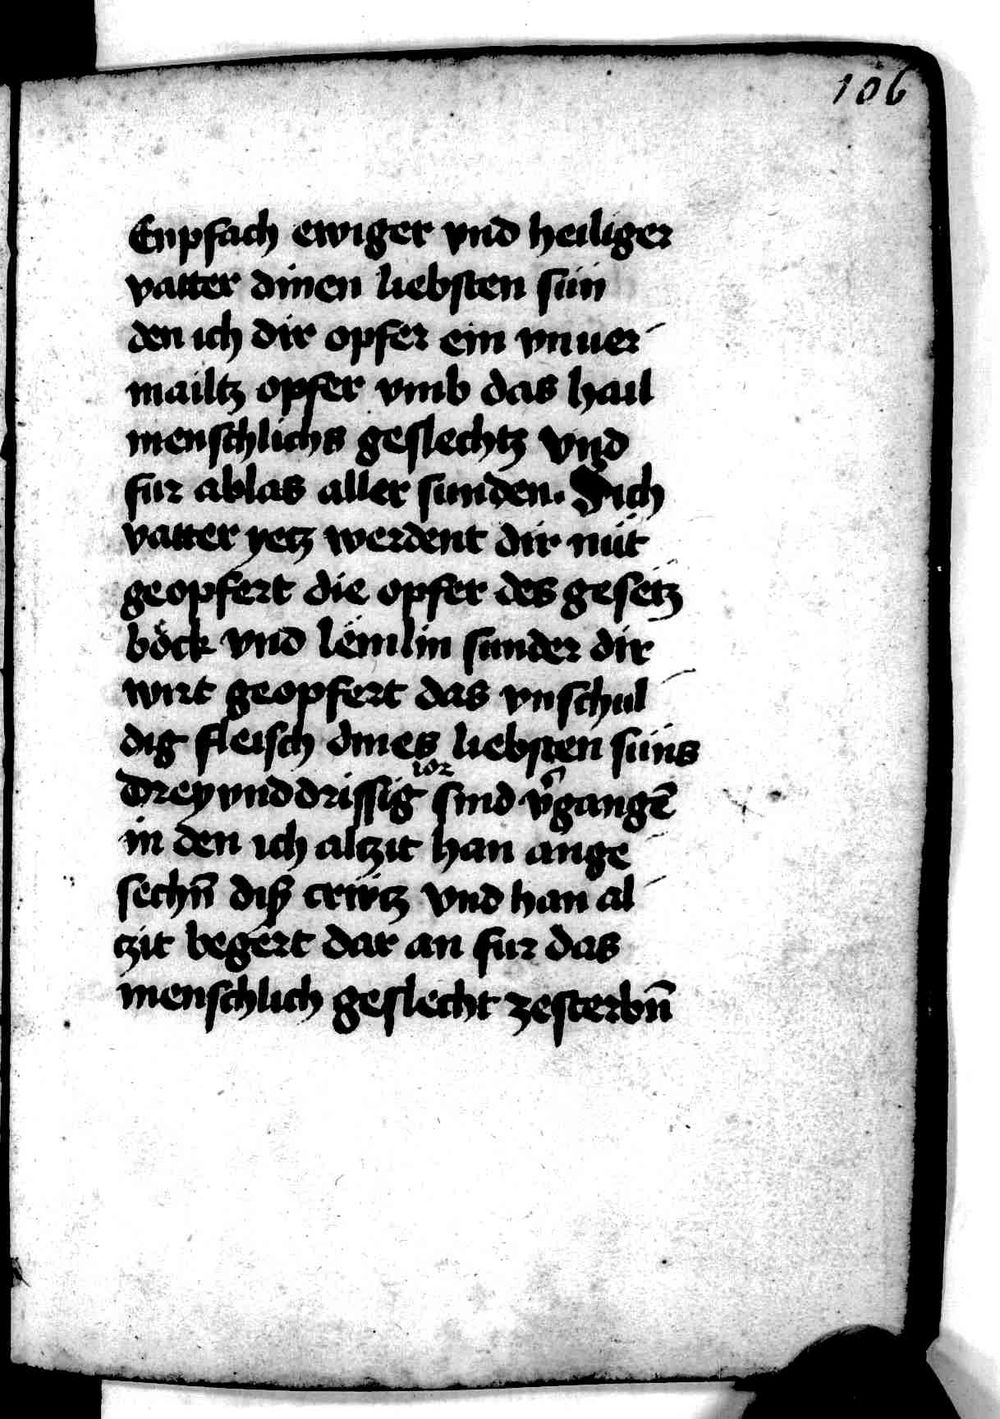 106
Enpfach ewiger vnd heiliger
vatter dinen liebsten sún
den ich dir opfer ein vnuer-
mailtz opfer vmb das hail
menschlichs geslechtz vnd
fur ablas aller sunden. Sich
vatter yetz werdent dir nút
geopfert die opfer des gesetz
böck vnd lemlin sunder dir
wirt geopfert das vnschul-
dig fleisch dines liebsten súns
ior
Drey vnd drissig sind v̄gangē
in den ich altzit han ange-
sechn̄ diß crútz vnd han al-
tzit begert dar an fur das
menschlich geslecht zesterbn̄